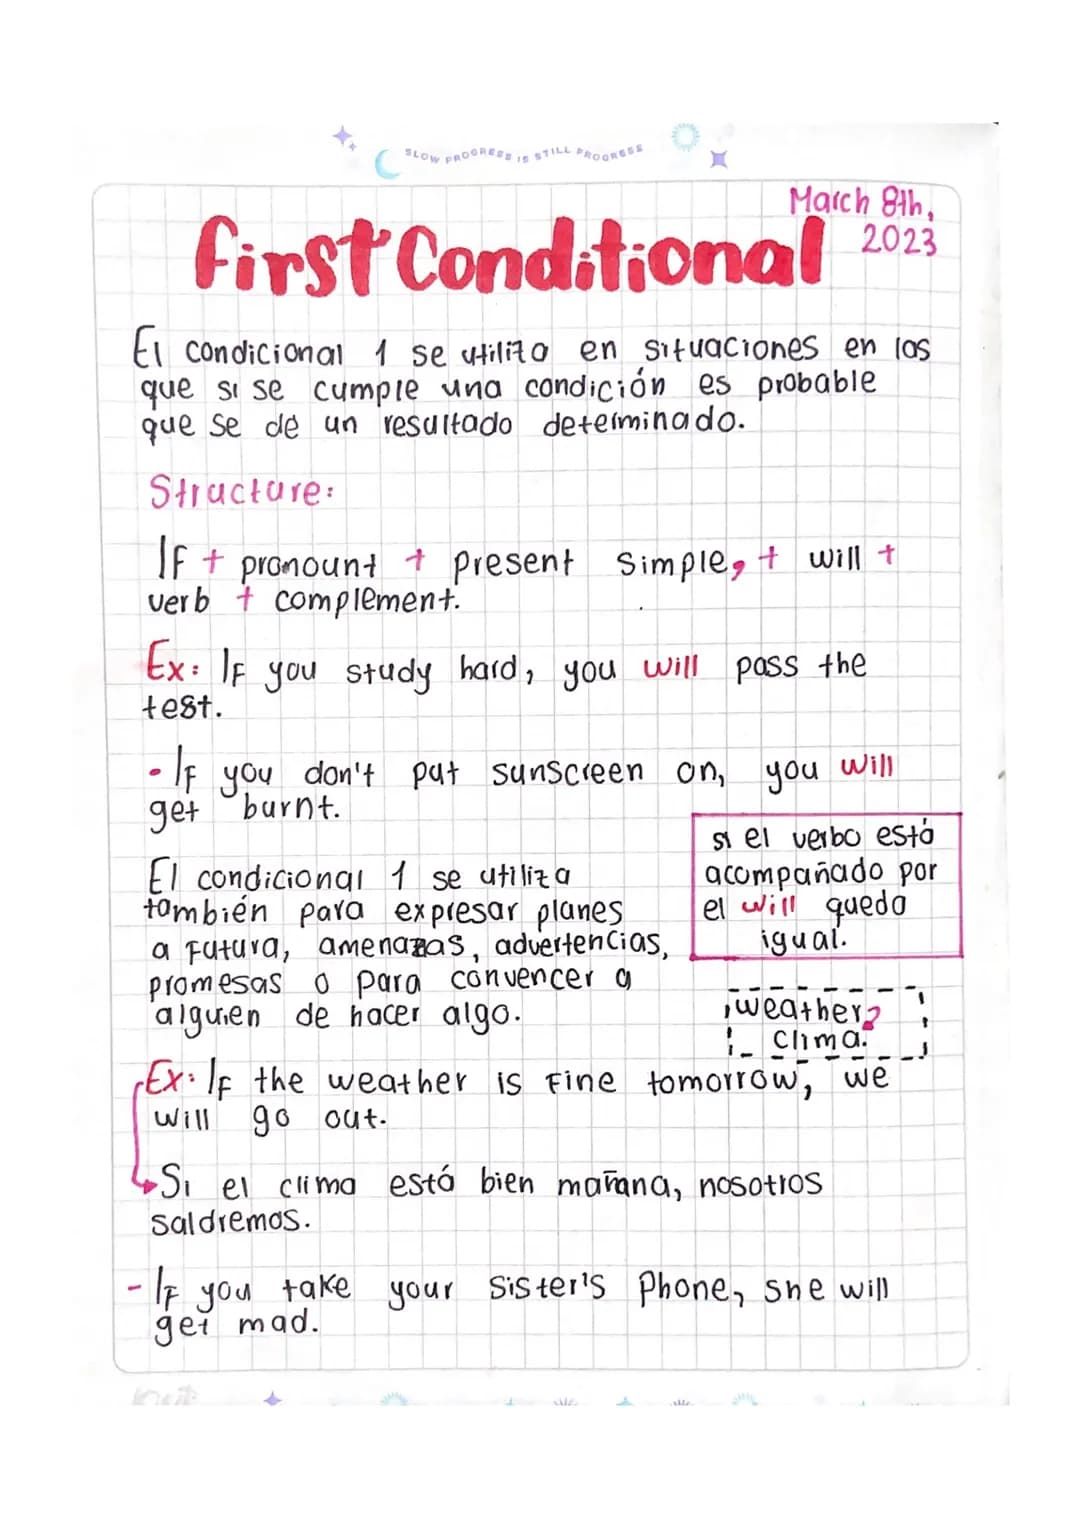 SLOW PROGRESS IS STILL PROGRESS
March 8th,
2023
First Conditional
El condicional 1 se utiliza en situaciones en las
que si se cumple una condición es probable
que se dé un resultado determinado.
Structure:
If + pronount + present simple, + will +
verb + complement.
Ex: If you study hard, you will pass the
test.
- If you don't put sunscreen on, you will
get burnt.
si el verbo está
acompañado por
el will queda
igual.
El condicional 1 se utiliza
también para expresar planes
a futura, amenazas, advertencias,
promesas o para convencer a
alguien de hacer algo.
weather?
clima.
Ex: If the weather is fine tomorrow, we
will go out.
Si el clima está bien mañana, nosotros
saldremos.
- If you take your sister's phone, she will
get mad.